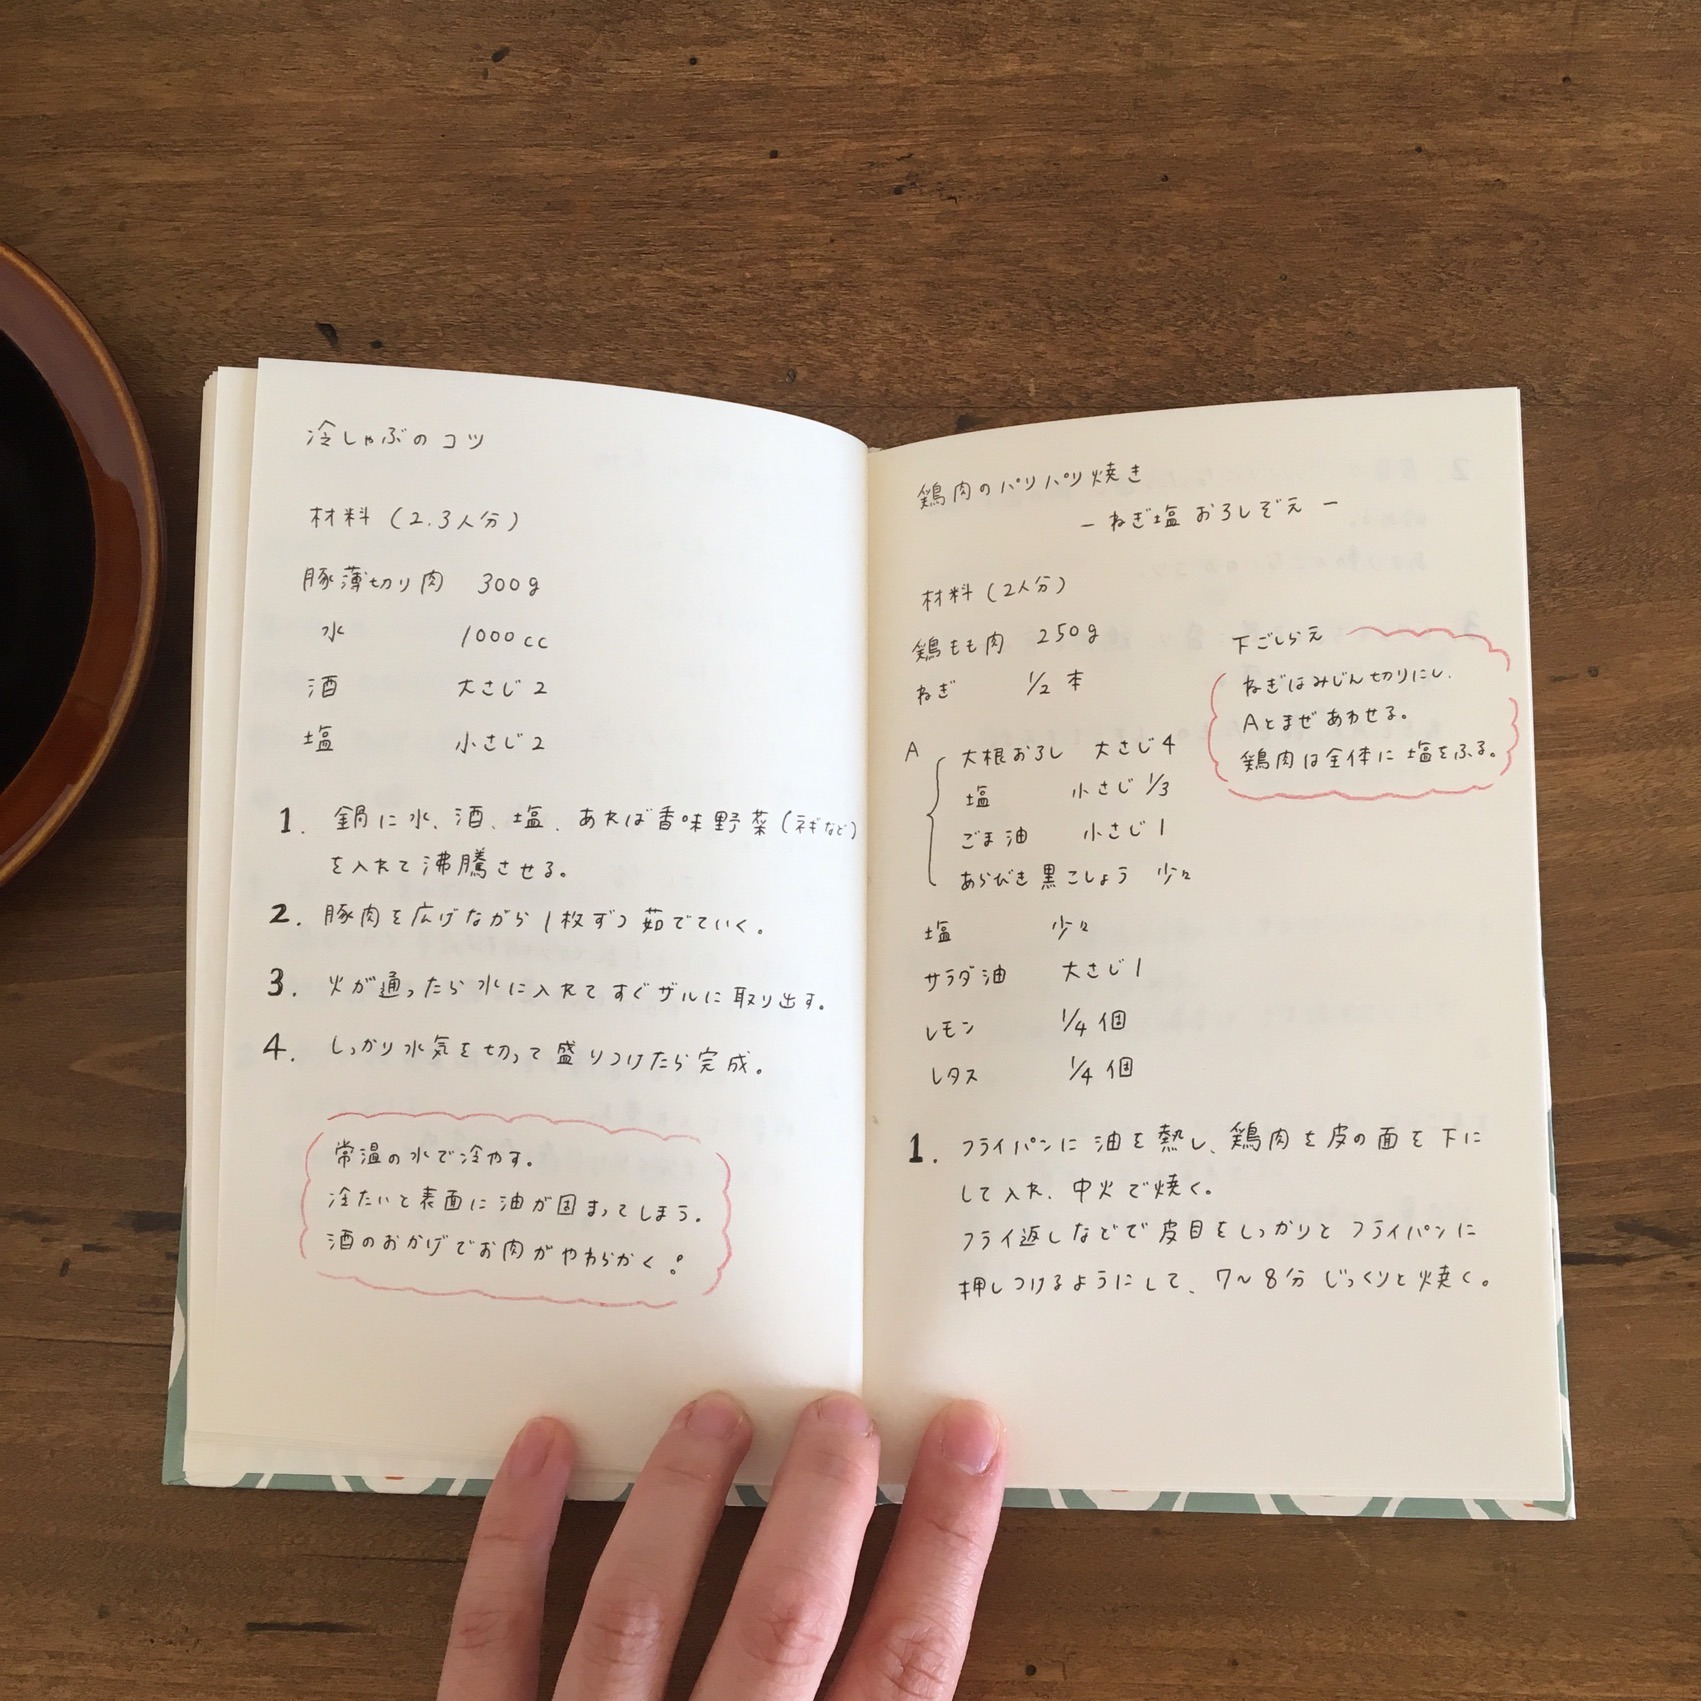 冷しゃぶのコツ
材料(2.3人分)
豚薄切り肉 300g
水 1000cc
酒 大さじ2
塩 小さじ2
1. 鍋に水、酒、塩、あれば香味野菜(ネギなど)
を入れて沸騰させる。
2. 豚肉を広げながら1枚ずつ茹でていく。
3. 火が通ったら水に入れてすぐザルに取り出す。
4. しっかり水気を切って盛りつけたら完成。
常温の水で冷やす。
冷たいと表面に油が固まってしまう。
酒のおかげでお肉がやわらかく!
鶏肉のパリパリ焼き
ーねぎ塩おろしぞえー
材料(2人分)
鶏もも肉 250g
ねぎ 1/2本
A
大根おろし 大さじ4
塩 小さじ1/3
ごま油 小さじ1
あらびき黒こしょう 少々
塩 少々
サラダ油 大さじ1
レモン 1/4個
レタス 1/4個
下ごしらえ
ねぎはみじん切りにし、
Aとまぜあわせる。
鶏肉は全体に塩をふる。
1. フライパンに油を熱し、鶏肉を皮の面を下に
して入れ、中火で焼く。
フライ返しなどで皮目をしっかりとフライパンに
押しつけるようにして、7〜8分じっくりと焼く。